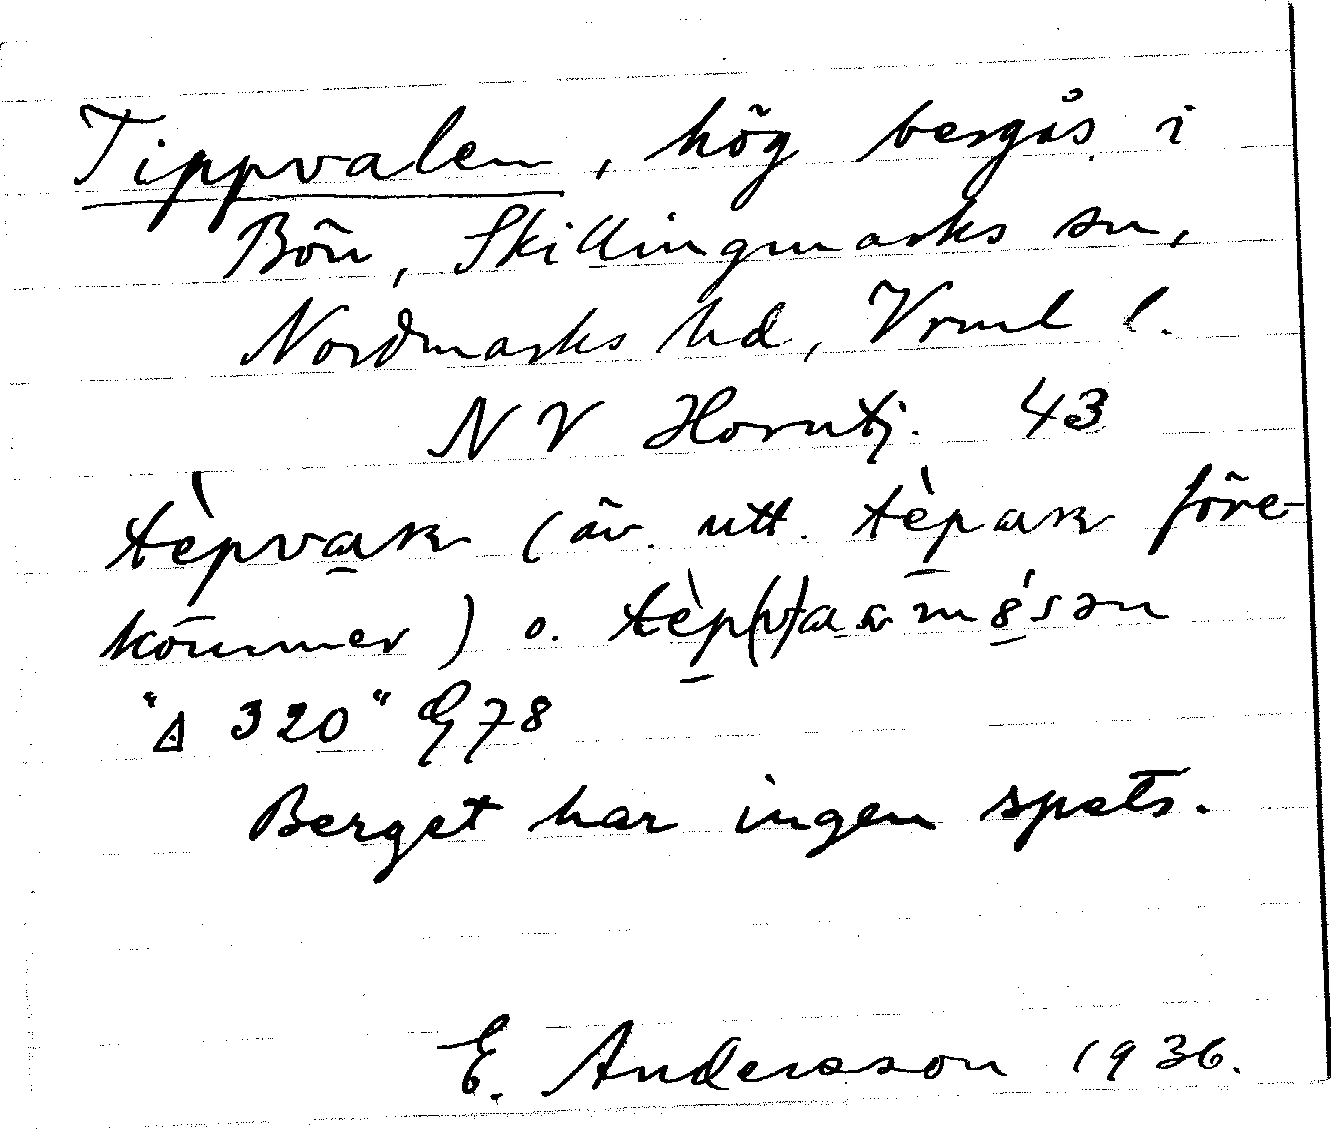 Tippvalen, hög bergås i
Bön, Skillingmarks sn,
Nordmarks hd, Vrml l.
NV Horntj. 43
tèpvaɴ (äv. utt. tèpaɴ före-
kommer) o. tèp(v)aɴ
"∆ 320" E78
Berget har ingen spets.
E. Andersson 1936.